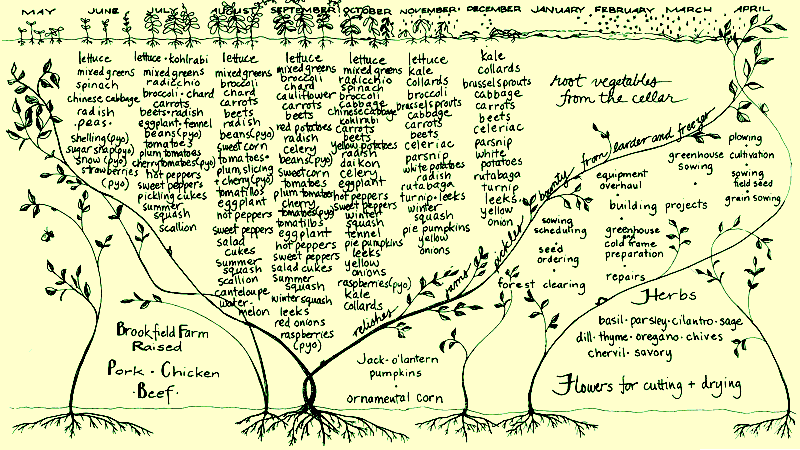 MAY JUNE JULY AUGUST SEPTEMBER OCTOBER NOVEMBER DECEMBER JANUARY FEBRUARY MARCH APRIL
lettuce
mixed greens
spinach
chinese cabbage
radish
peas-
shelling (pyo)
sugar snap (pyo)
snow (pyo)
strawberries
(pyo)
lettuce · kohlrabi
mixed greens
radicchio
broccoli · chard
carrots
beets · radish
eggplant · fennel
beans (pyo)
tomatoes
plum tomatoes
cherry tomatoes (pyo)
hot peppers
sweet peppers
pickling cukes
summer
squash
scallion
lettuce
mixed greens
broccoli
chard
carrots
beets
radish
beans (pyo)
sweet corn
tomatoes-
plum, slicing
+ cherry (pyo)
tomatillos
eggplant
hot peppers
sweet peppers
salad
cukes
summer
squash
scallion
canteloupe
water-
melon
lettuce
mixed greens
broccoli
chard
cauliflower
carrots
beets
red potatoes
radish
celery
beans (pyo)
sweet corn
tomatoes
plum tomatoes
cherry
tomatoes (pyo)
tomatillos
eggplant
hot peppers
sweet peppers
salad cukes
summer
squash
winter squash
leeks
red onions
raspberries
(pyo)
lettuce
mixed greens
radicchio
spinach
broccoli
cabbage
chinese cabbage
kohlrabi
carrots
beets
yellow potatoes
radish
daikon
celery
eggplant
hot peppers
sweet peppers
winter
squash
fennel
pie pumpkins
leeks
yellow
onions
raspberries (pyo)
kale
collards
lettuce
kale
collards
broccoli
brussel sprouts
cabbage
carrots
beets
celeriac
parsnip
white potatoes
radish
rutabaga
turnip · leeks
winter
squash
pie pumpkins
yellow
onions
kale
collards
brussel sprouts
cabbage
carrots
beets
celeriac
parsnip
white
potatoes
rutabaga
turnip
leeks
yellow
onion
root vegetables
from the cellar
relishes jams pickles bounty from larder and freezer
sowing
scheduling
seed
ordering
forest clearing
equipment
overhaul
building projects
greenhouse
and
cold frame
preparation
repairs
greenhouse
sowing
plowing
cultivation
sowing
field seed
grain sowing
Brookfield Farm
Raised
Pork · Chicken
· Beef ·
Jack-o'lantern
pumpkins
ornamental corn
Herbs
basil · parsley · cilantro · sage
dill · thyme · oregano · chives
chervil · savory
Flowers for cutting + drying